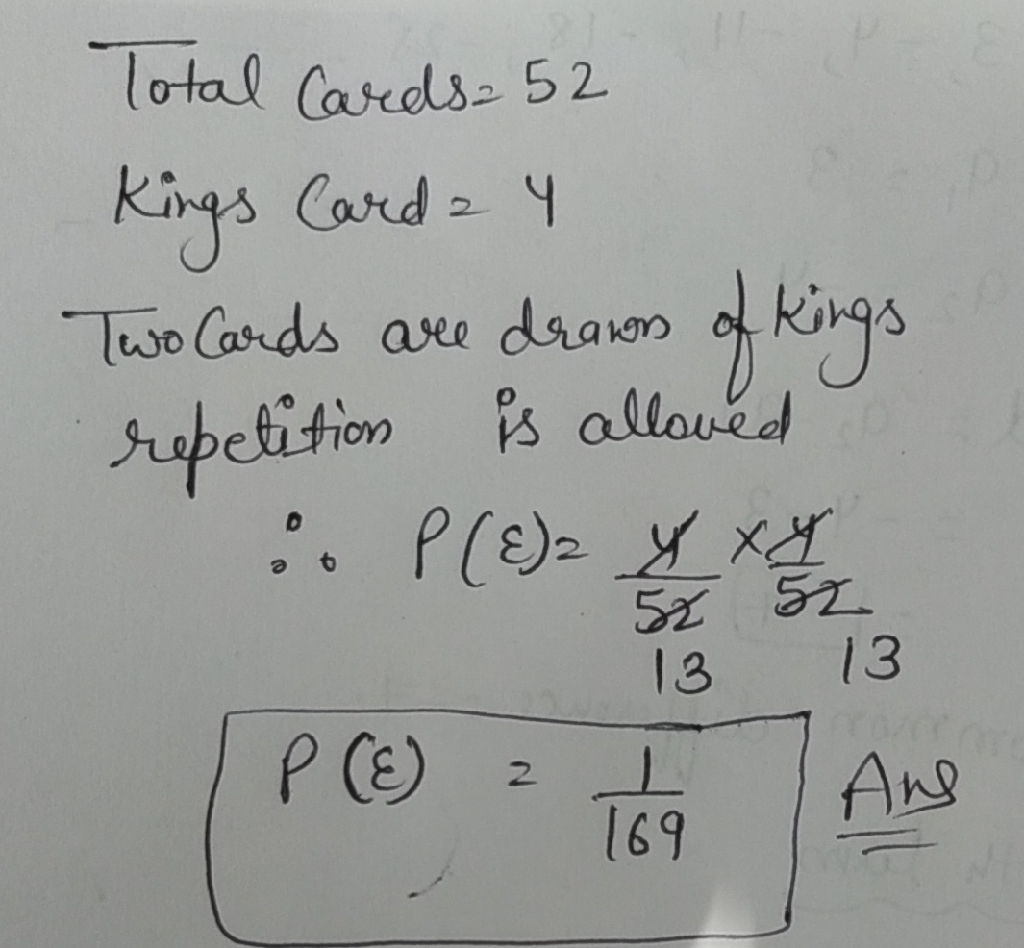 Total Cards = 52
Kings Card = 4
Two Cards are drawn of kings
repetition is allowed
∴ P(E) = 4/52 × 4/52
13 13
P(E) = 1/169 Ans